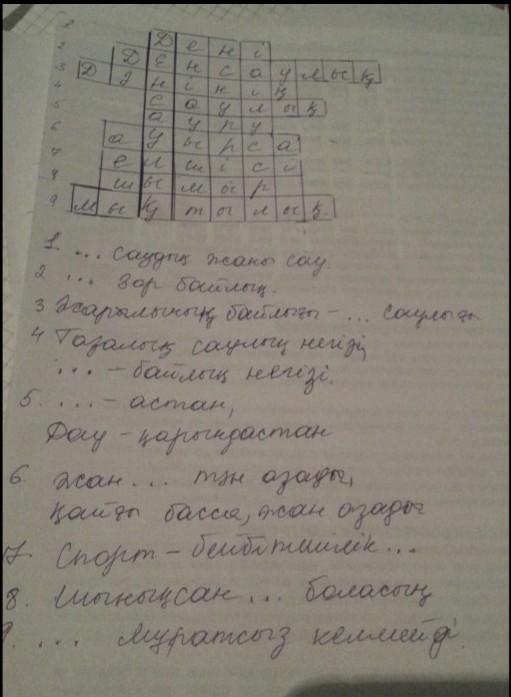 1
2
3
4
5
6
7
8
9
Дені
Денсаулық
Дінінің
саулық
ауру
ауырса
елшісі
шымыр
мықтылық
1. ... саудың жаны сау.
2 ... зор байлық.
3 Жарылының байлығы - ... саулығы
4 Тазалық саулық негізі,
... - байлық негізі.
5. ... - астан,
Дау - қарындастан
6. Жан ... тән азады,
Қайғы басса, жан азады
7. Спорт - бейбітшілік ...
8. Шынықсаң ... боласың
9. ... мұратсыз келмейді.